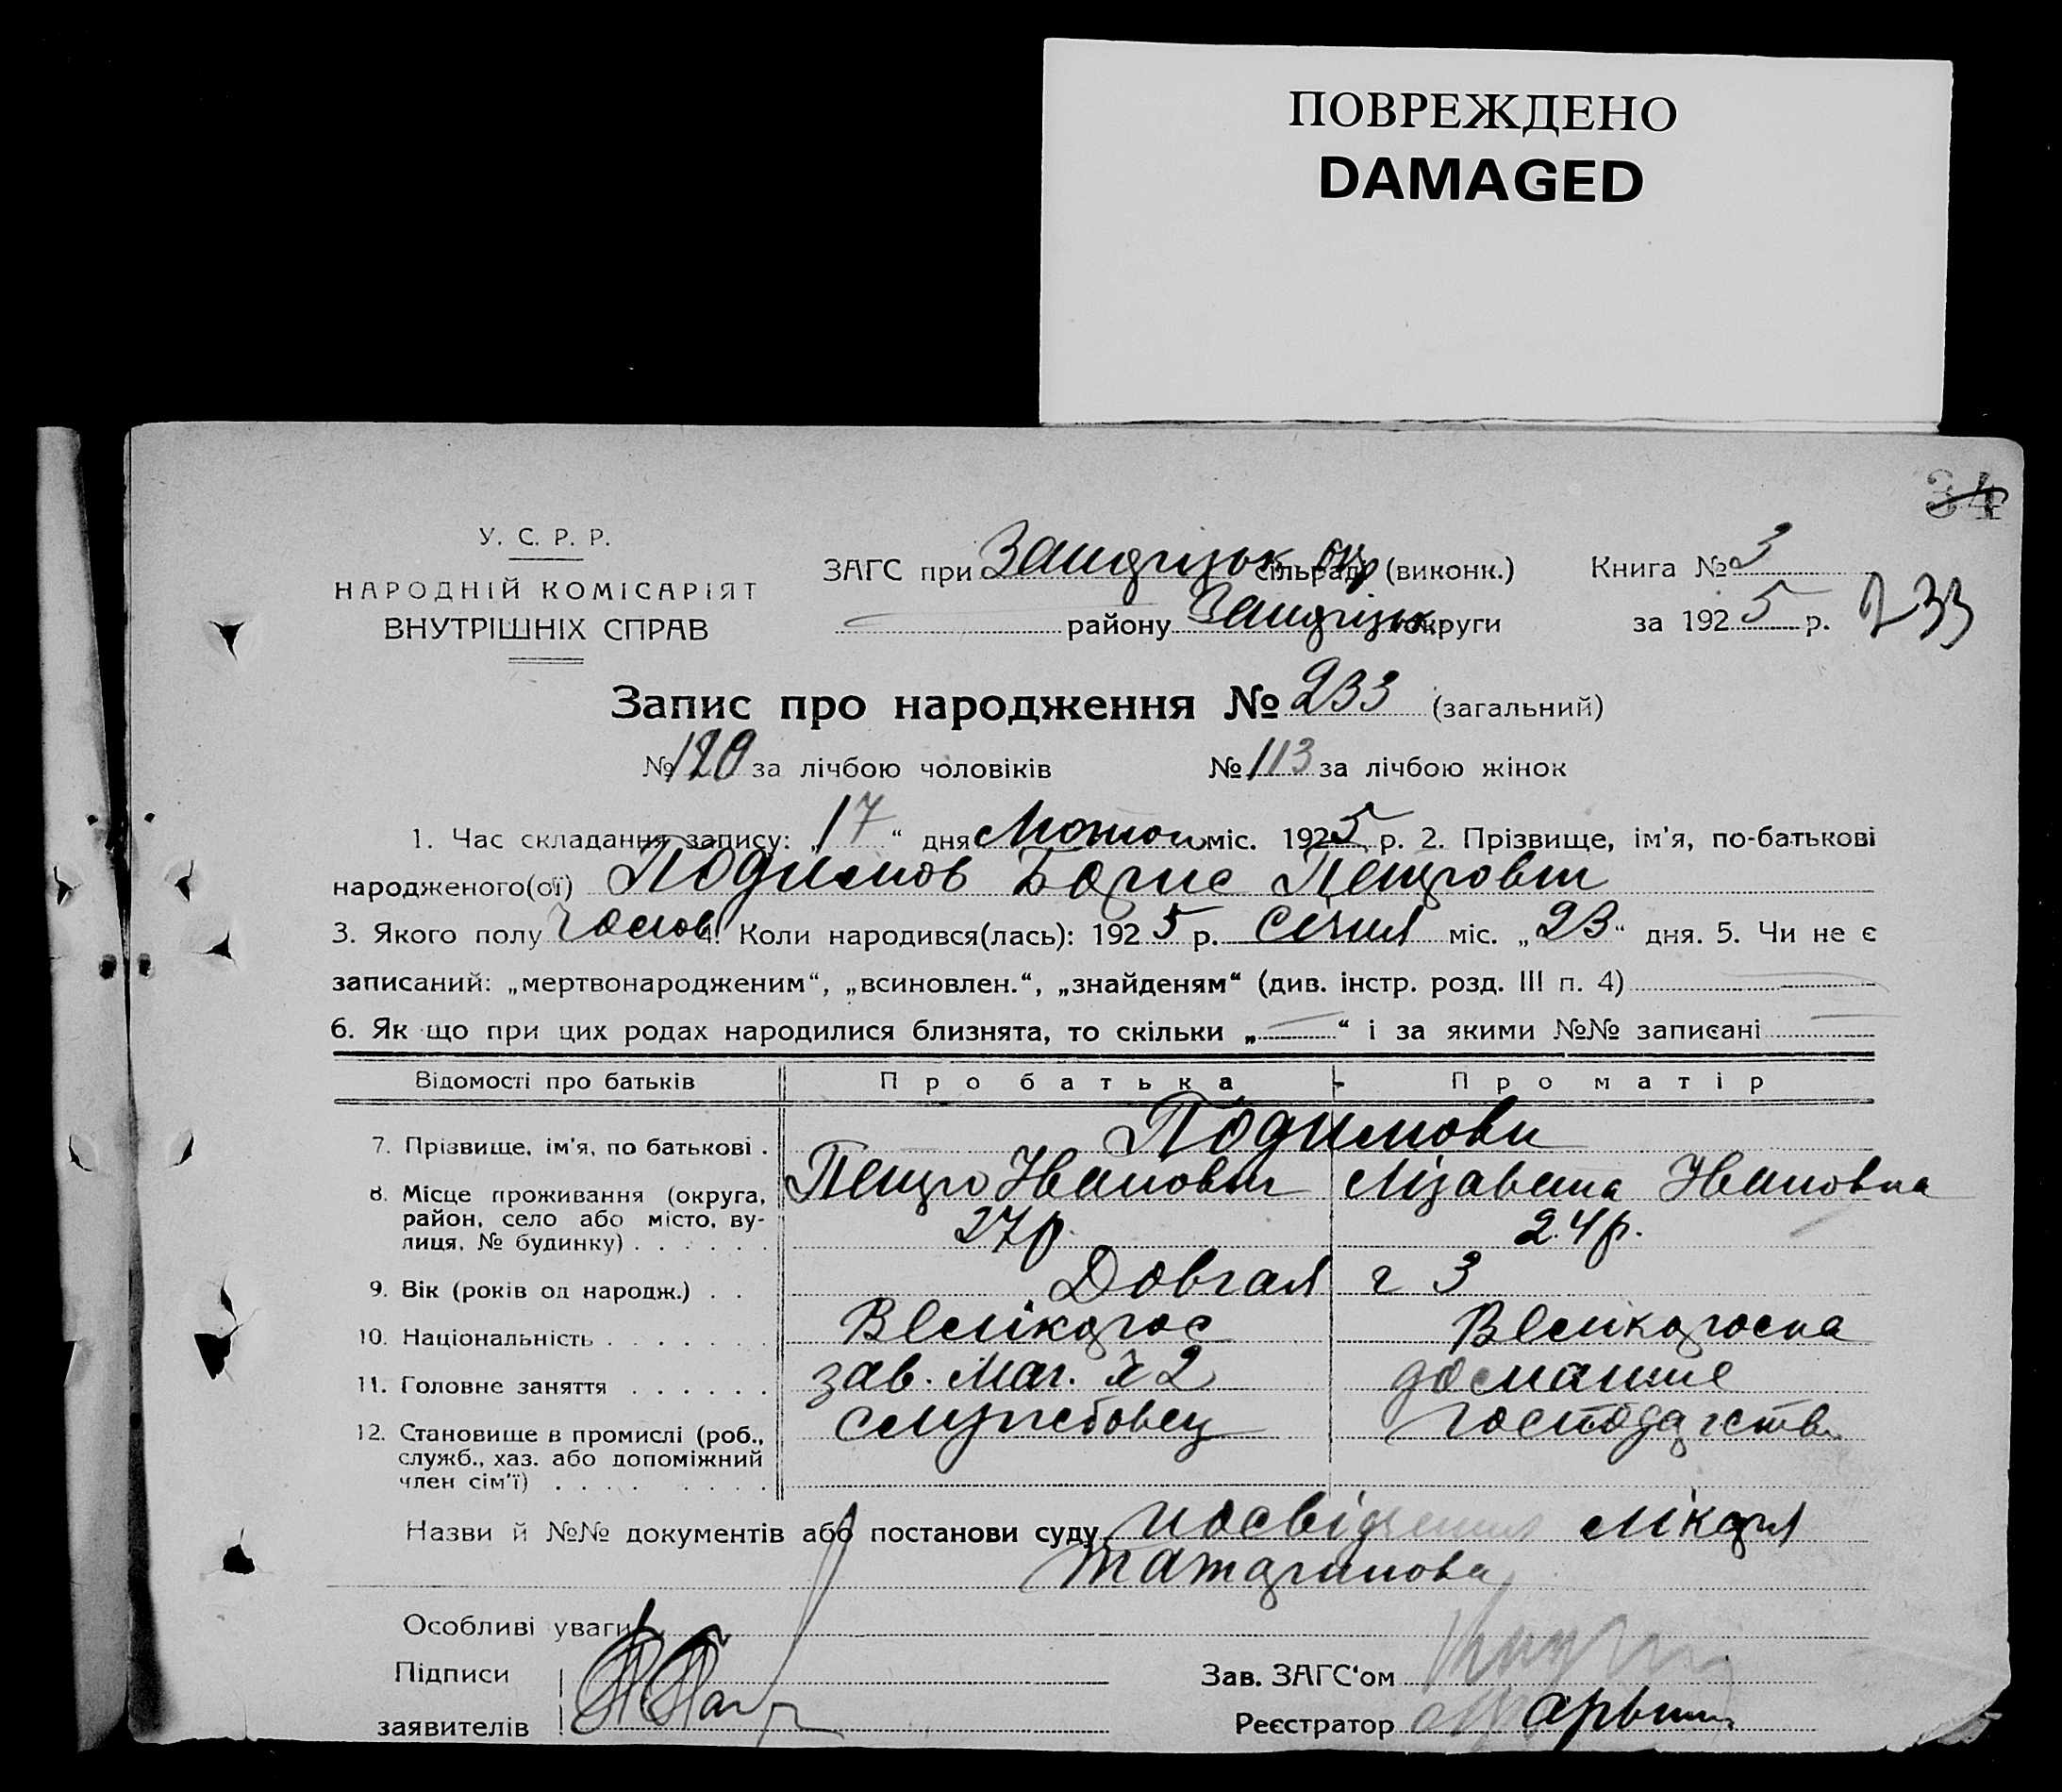 ПОВРЕЖДЕНО
DAMAGED
34
У. С. Р. Р.
НАРОДНІЙ КОМІСАРІЯТ
ВНУТРІШНІХ СПРАВ
ЗАГС при сільраді окр (виконк.)
району округи
Книга № 3
за 1925 р. 233
Запис про народження № 233 (загальний)
№ 120 за лічбою чоловіків № 113 за лічбою жінок
1. Час складання запису: „17“ дня Лютого міс. 1925 р. 2. Прізвище, ім'я, по-батькові
народженого(ої) Подимов Борис Петрович
3. Якого полу чолов 4. Коли народився(лась): 1925 р. січня міс. „23“ дня. 5. Чи не є
записаний: „мертвонародженим“, „всиновлен.“, „знайденям“ (див. інстр. розд. III п. 4)
6. Як що при цих родах народилися близнята, то скільки „—“ і за якими №№ записані —
Відомості про батьків Про батька Про матір
7. Прізвище, ім'я, по батькові . Подимови
Петро Іванович Лізавета Івановна
8. Місце проживання (округа,
район, село або місто, ву-
лиця, № будинку) . . . . . .
27 р. 24 р.
9. Вік (років од народж.) . . Довгая ч 3
10. Національність . . . . . . . Великорос Великороска
11. Головне заняття . . . . . . зав. маг. № 2 домашнє
12. Становище в промислі (роб.,
служб., хаз. або допоміжний
член сім'ї) . . . . . . . .
службовец господарство
Назви й №№ документів або постанови суду посвідчення лікаря
Особливі уваги
Підписи
заявителів
Зав. ЗАГС'ом
Реєстратор